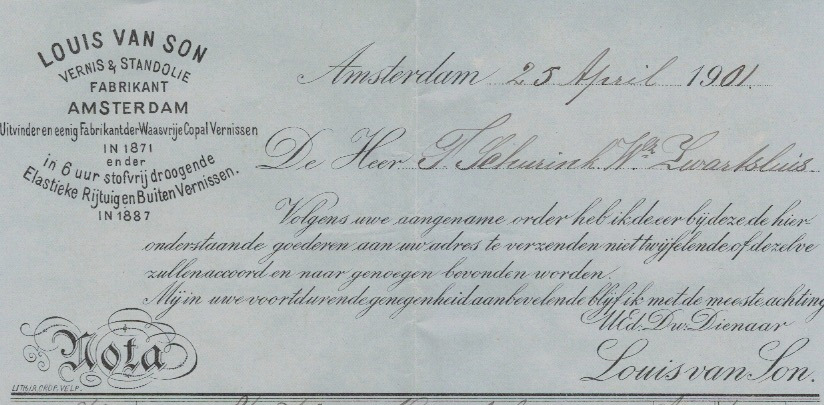 LOUIS VAN SON
VERNIS & STANDOLIE
FABRIKANT
AMSTERDAM
Uitvinder en eenig Fabrikant der Waasvrije Copal Vernissen
IN 1871
en der
in 6 uur stofvrij droogende
Elastieke Rijtuig en Buiten Vernissen.
IN 1887
Amsterdam 25 April 1901.
De Heer T. Schurink Wz. Zwartsluis
Volgens uwe aangename order heb ik de eer bij deze de hier-
onderstaande goederen aan uw adres te verzenden niet twijfelende of dezelve
zullen accoord en naar genoegen bevonden worden.
Mij in uwe voortdurende genegenheid aanbevelende blijf ik met de meeste achting
UEd. Dw. Dienaar
Louis van Son.
Nota